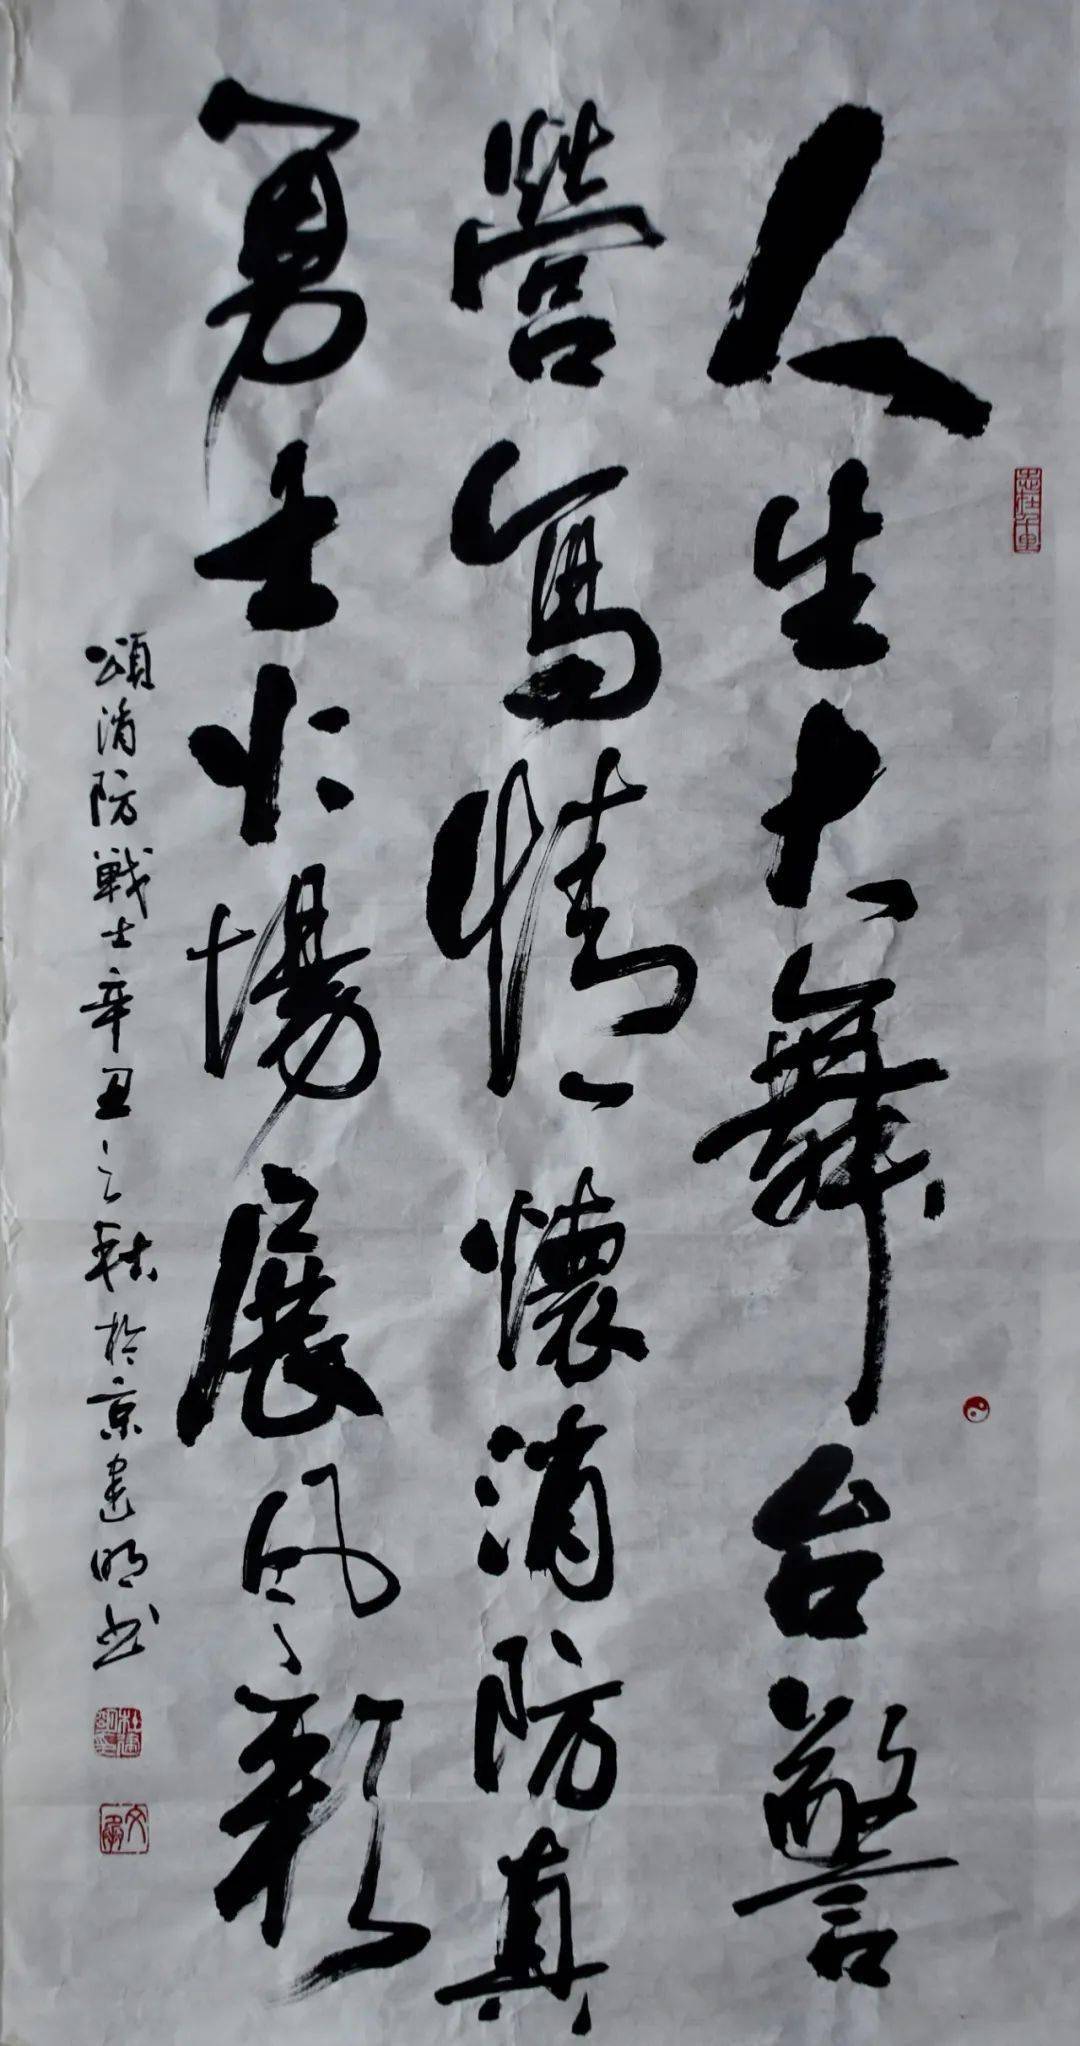 人生大舞台警
營寫情懷消防真
勇士火場展风彩
頌消防戰士辛丑之秋於京建明书